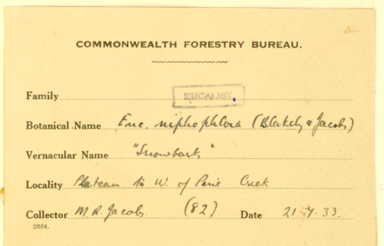 COMMONWEALTH FORESTRY BUREAU.
Family
EUCALYPT.
Botanical Name Euc. niphophlora (Blakely & Jacobs)
Vernacular Name "Snowbark."
Locality Plateau to W. of Creek
Collector M. R. Jacobs (82) Date 21.7.33.
2694.